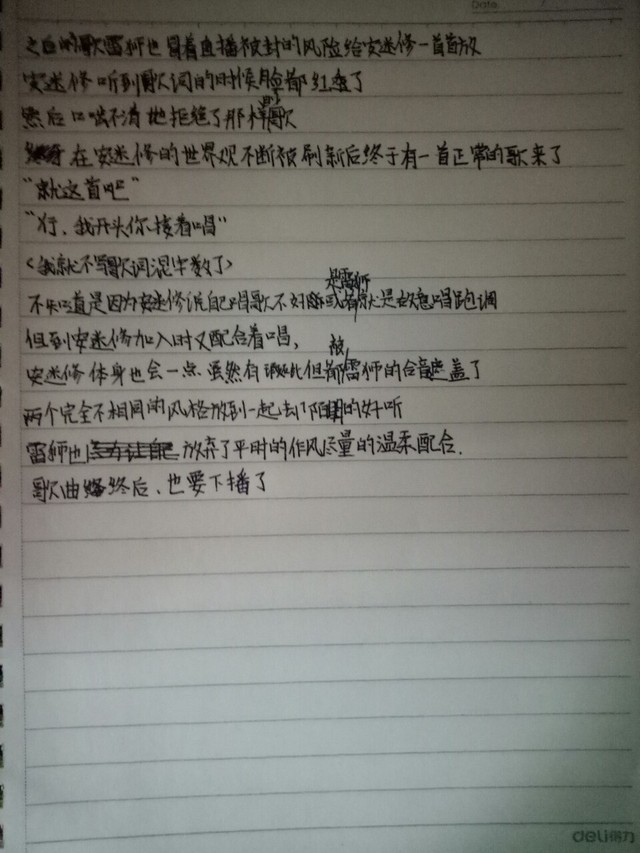 Date
之后的歌雷狮也冒着直播被封的风险给安迷修一首首放
安迷修听到歌词的时候脸都红透了
然后口嗤不清地拒绝了那样的歌
在安迷修的世界观不断被刷新后终于有一首正常的歌来了
“就这首吧”
“行、我开头你接着唱”
(我就不写歌词混字数了)
不知道是因为安迷修说自己唱歌不好听还是雷狮就是故意唱跑调
但到安迷修加入时又配合着唱,
安迷修体身也会一点、虽然有但都被雷狮的合音遮盖了
两个完全不相同的风格放到一起去了阳的好听
雷狮也放弃了平时的作风尽量的温柔配合.
歌曲终后、也要下播了
deli得力